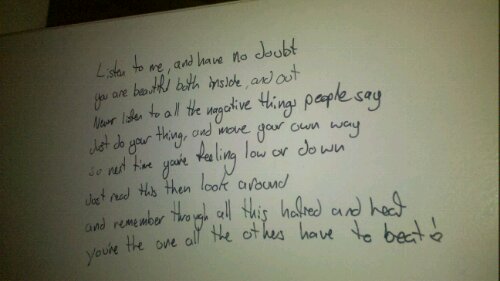 Listen to me, and have no doubt
you are beautiful both inside, and out
Never listen to all the nagative things people say
Just do your thing, and move your own way
so next time you're feeling low or down
Just read this then look around
and remember through all this hatred and heat
you're the one all the others have to beat